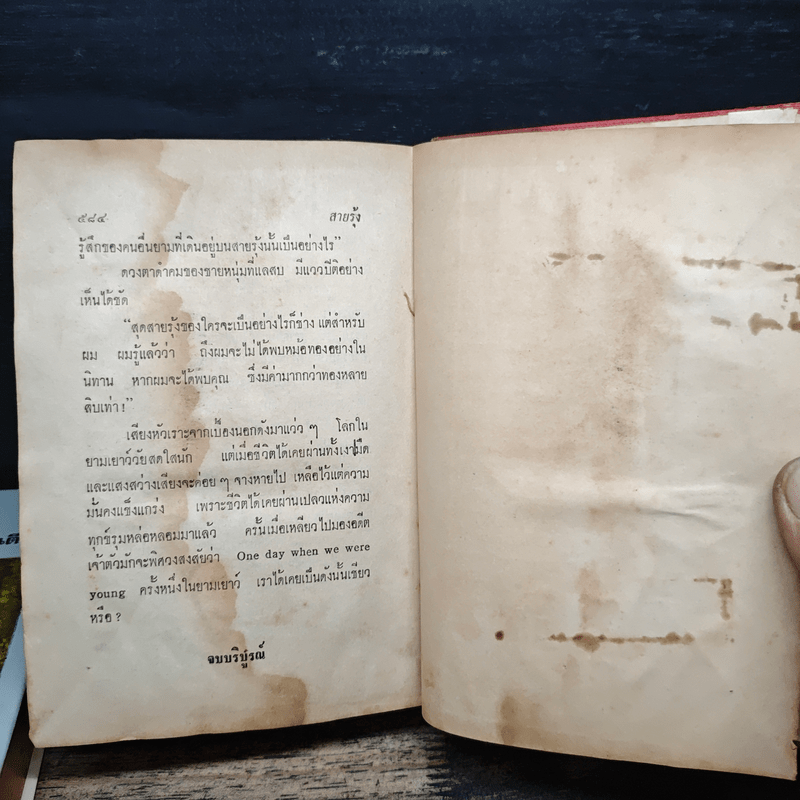 ๕๘๔ สายรุ้ง
รู้สึกของคนอื่นยามที่เดินอยู่บนสายรุ้งนั้นเป็นอย่างไร"
ดวงตาดำคมของชายหนุ่มที่แลสบ มีแววปีติอย่าง
เห็นได้ชัด
"สุดสายรุ้งของใครจะเป็นอย่างไรก็ช่าง แต่สำหรับ
ผม ผมรู้แล้วว่า ถึงผมจะไม่ได้พบหม้อทองอย่างใน
นิทาน หากผมจะได้พบคุณ ซึ่งมีค่ามากกว่าทองหลาย
สิบเท่า!"
เสียงหัวเราะจากเบื้องนอกดังมาแว่ว ๆ โลกใน
ยามเยาว์วัยสดใสนัก แต่เมื่อชีวิตได้เคยผ่านทั้งเงามืด
และแสงสว่างเสียงจะค่อย ๆ จางหายไป เหลือไว้แต่ความ
มั่นคงแข็งแกร่ง เพราะชีวิตได้เคยผ่านเปลวแห่งความ
ทุกข์รุมหล่อหลอมมาแล้ว ครั้นเมื่อเหลียวไปมองอดีต
เจ้าตัวมักจะพิศวงสงสัยว่า One day when we were
young ครั้งหนึ่งในยามเยาว์ เราได้เคยเป็นดังนั้นเชียว
หรือ?
จบบริบูรณ์